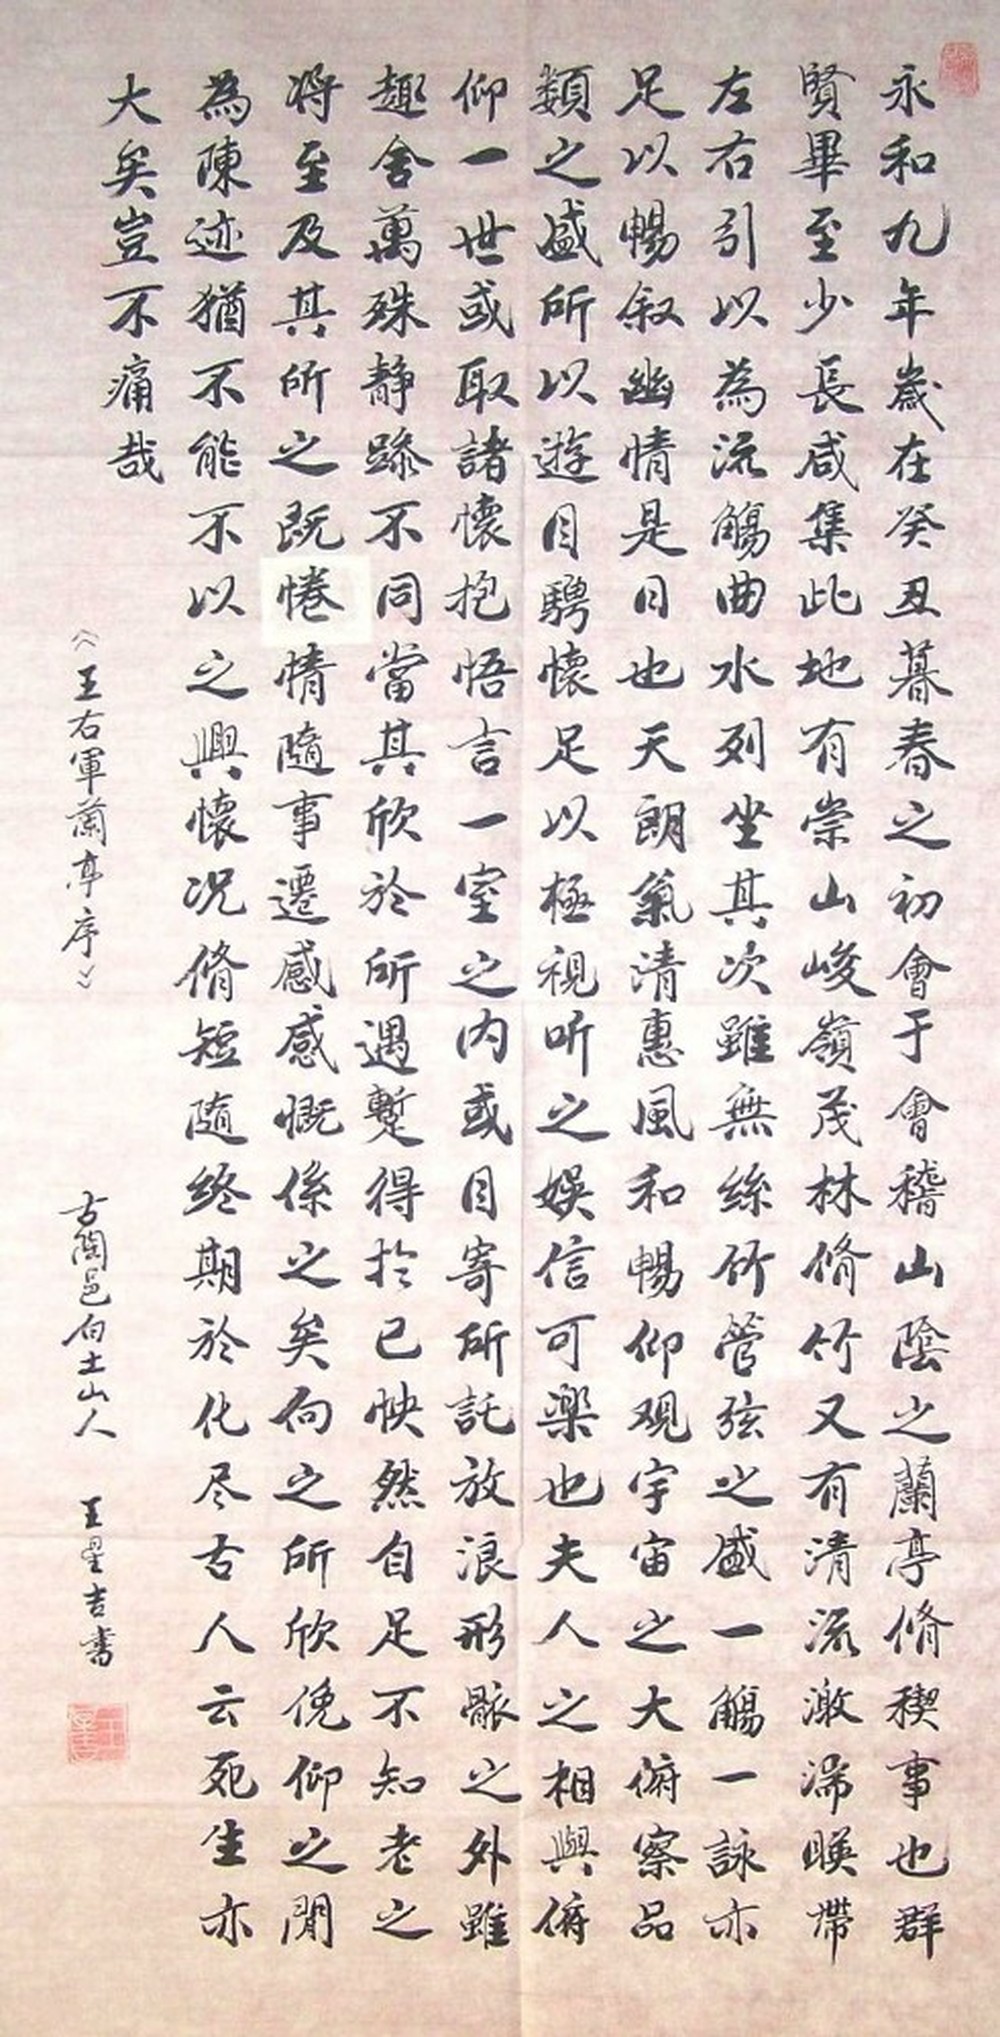 永和九年歲在癸丑暮春之初會于會稽山陰之蘭亭脩稧事也群
賢畢至少長咸集此地有崇山峻嶺茂林脩竹又有清流激湍暎帶
左右引以為流觴曲水列坐其次雖無絲竹管弦之盛一觴一詠亦
足以暢叙幽情是日也天朗氣清惠風和暢仰观宇宙之大俯察品
類之盛所以遊目騁懷足以極視听之娛信可樂也夫人之相與俯
仰一世或取諸懷抱悟言一室之内或目寄所託放浪形骸之外雖
趣舍萬殊静躁不同當其欣於所遇蹔得扵己怏然自足不知老之
将至及其所之既惓情隨事遷感感慨係之矣向之所欣俛仰之閒
為陳迹猶不能不以之興懷况脩短隨终期於化尽古人云死生亦
大矣豈不痛哉
《王右軍蘭亭序》
古陶邑白土山人 王星吉書